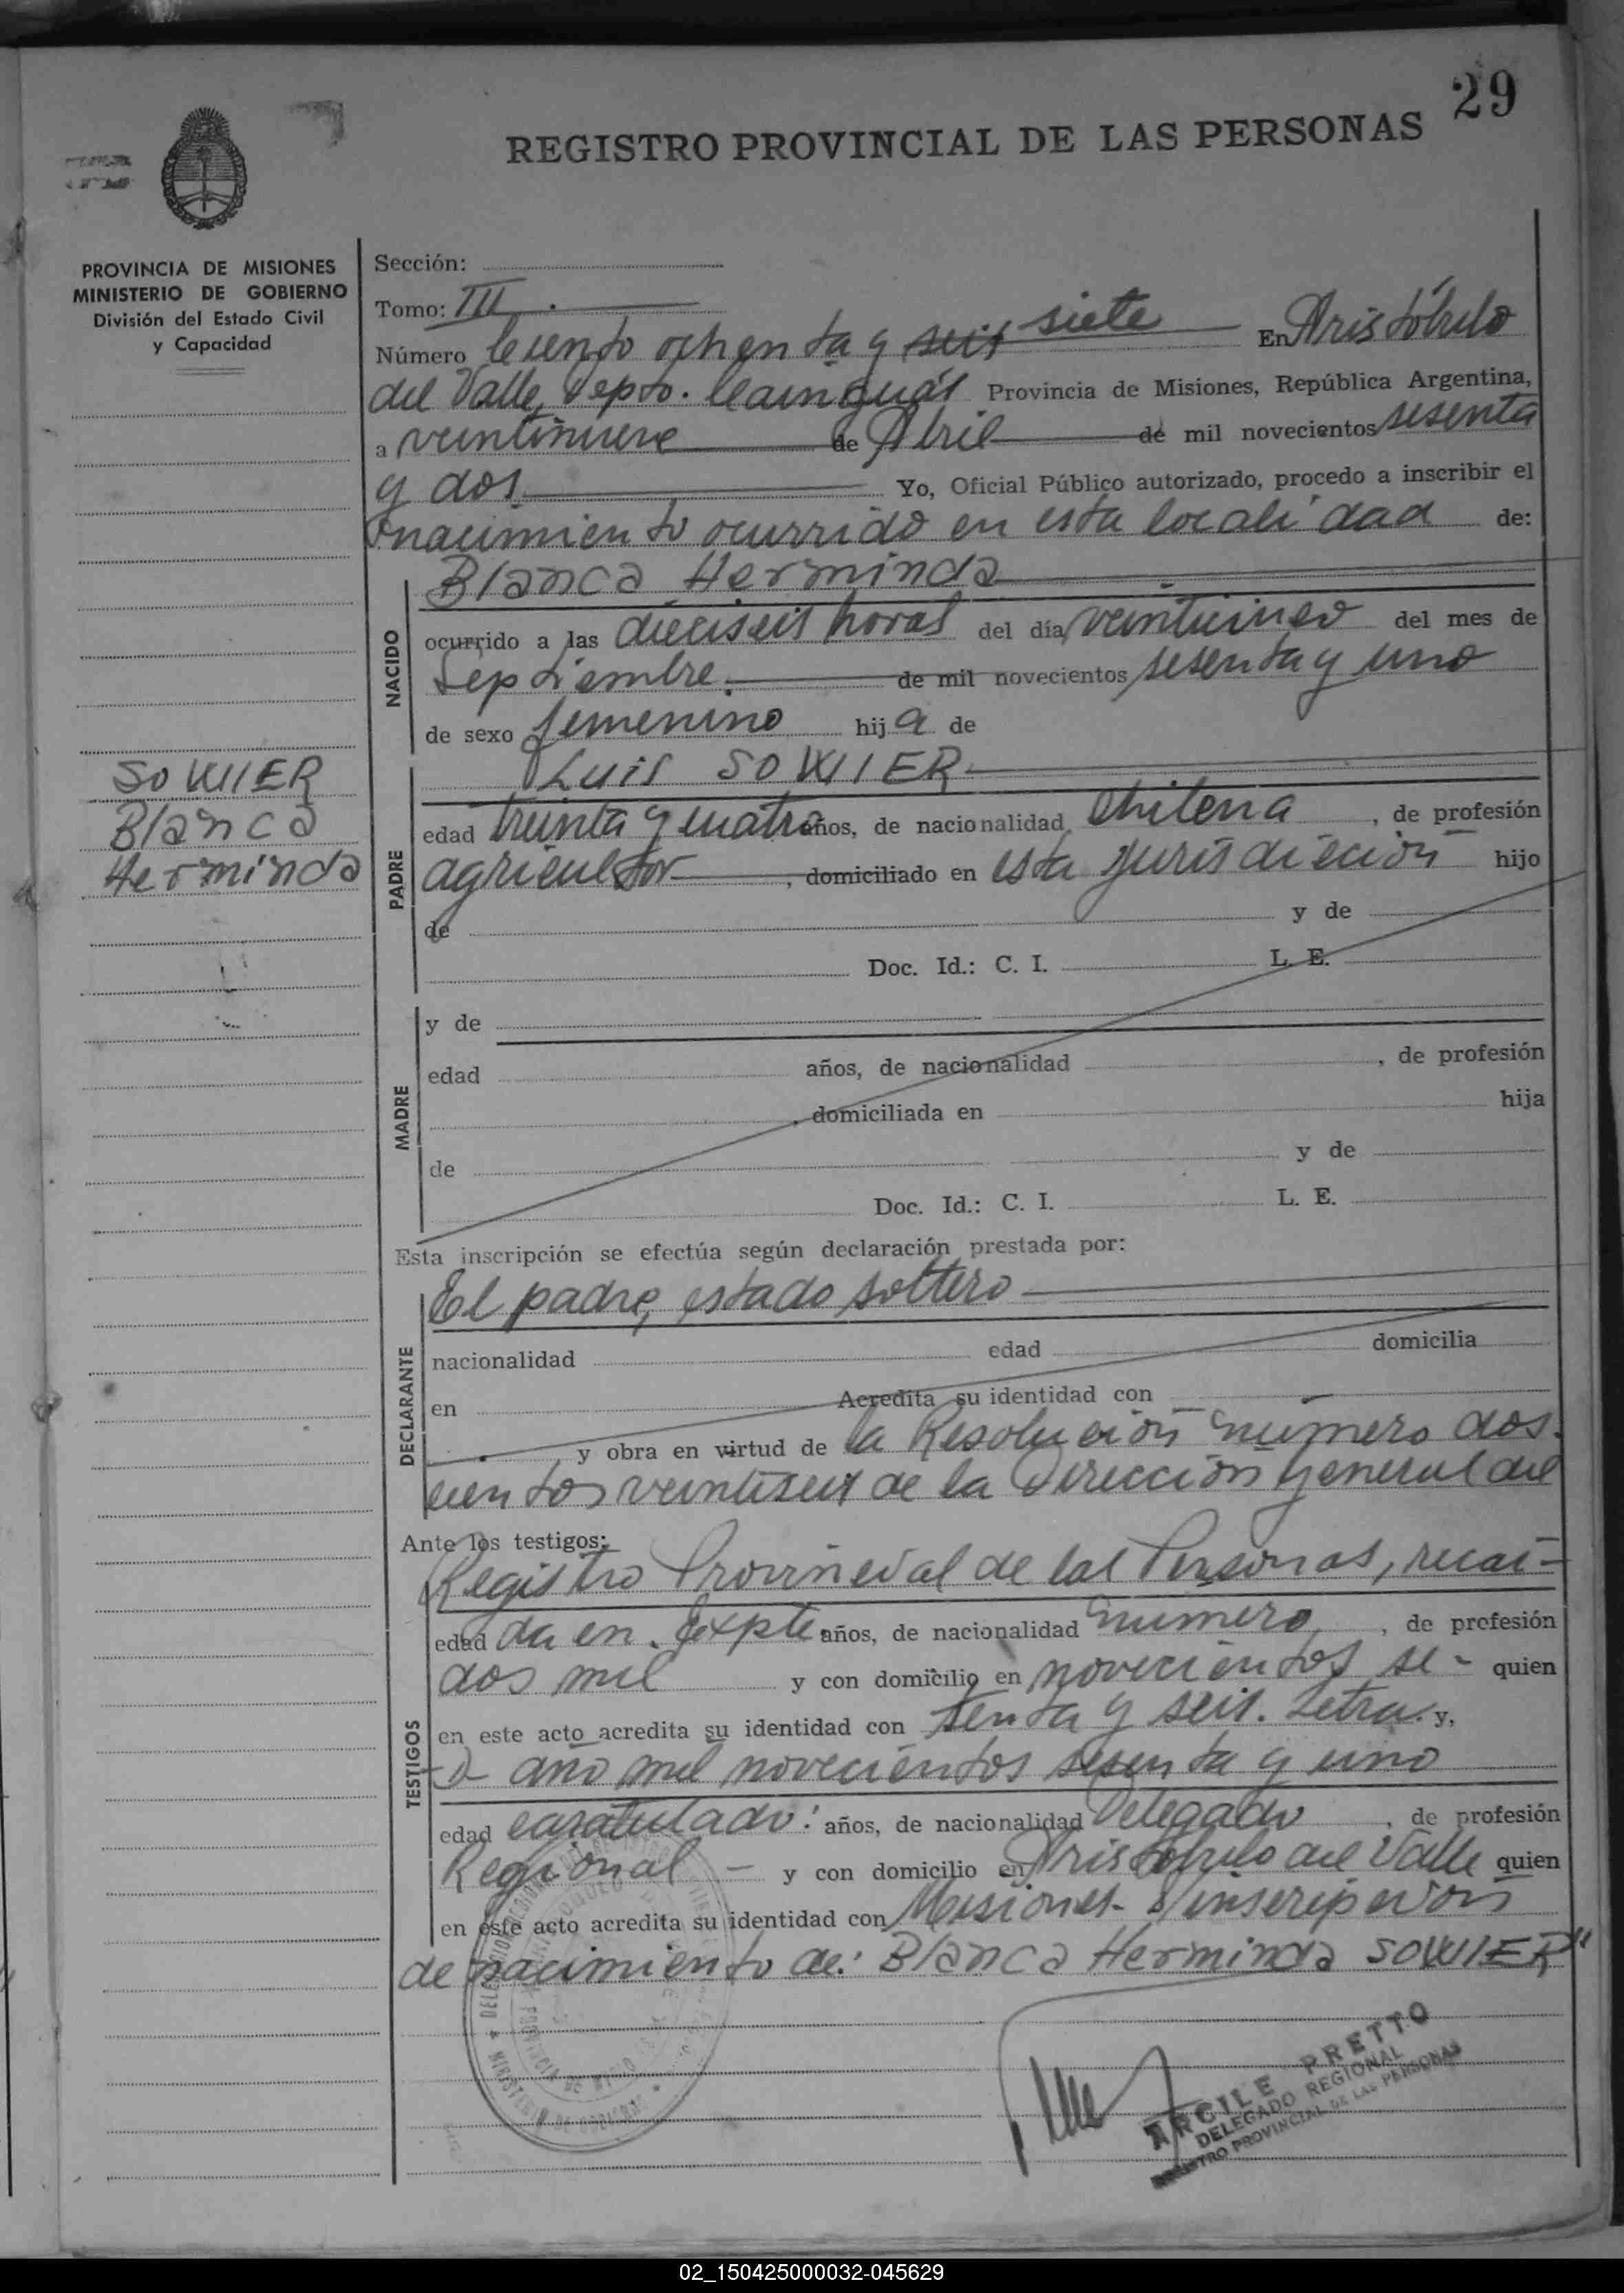 29
REGISTRO PROVINCIAL DE LAS PERSONAS
PROVINCIA DE MISIONES
MINISTERIO DE GOBIERNO
División del Estado Civil
y Capacidad
SOWIIER
Blanca
Herminda
Sección:
Tomo: III.
Número Ciento ochenta y seis siete En Aristóbulo
del Valle, Depto. Cainguás Provincia de Misiones, República Argentina,
a veintinueve de Abril de mil novecientos sesenta
y dos Yo, Oficial Público autorizado, procedo a inscribir el
nacimiento ocurrido en esta localidad de:
NACIDO
Blanca Herminda
ocurrido a las dieciseis horas del día veinticinco del mes de
Septiembre. de mil novecientos sesenta y uno
de sexo femenino hija de
PADRE
Luis SOWIIER
edad treinta y cuatro años, de nacionalidad Chilena, de profesión
agricultor, domiciliado en esta jurisdicción hijo
de y de
Doc. Id.: C. I. L. E.
MADRE
y de
edad años, de nacionalidad , de profesión
, domiciliada en hija
de y de
Doc. Id.: C. I. L. E.
Esta inscripción se efectúa según declaración prestada por:
DECLARANTE
El padre, estado soltero
nacionalidad edad domicilia
en Acredita su identidad con
y obra en virtud de la Resolución número dos-
cientos veintiseis de la Dirección General del
Ante los testigos:
Registro Provincial de las Personas, recaí-
TESTIGOS
edad da en Expte años, de nacionalidad número, de profesión
dos mil y con domicilio en novecientos se- quien
en este acto acredita su identidad con tenta y seis. Letra. y,
año mil novecientos sesenta y uno
edad caratulado: años, de nacionalidad Delegado, de profesión
Regional - y con domicilio en Aristóbulo del Valle quien
en este acto acredita su identidad con Misiones- s/inscripción
de nacimiento de: Blanca Herminda SOWIIER"
ARCILE PRETTO
DELEGADO REGIONAL
REGISTRO PROVINCIAL DE LAS PERSONAS
02_150425000032-045629